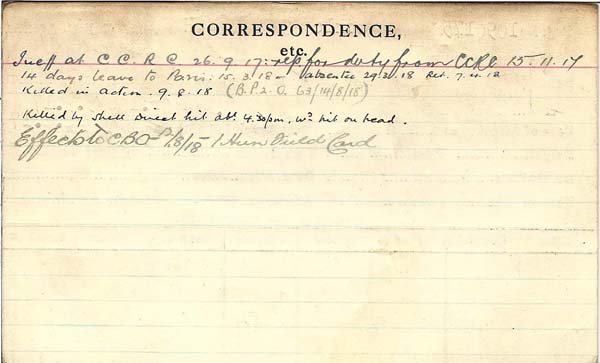 CORRESPONDENCE,
etc.
Ineff at C C R C 26.9.17: rep for duty from CCRC 15.11.17
14 days leave to Paris. 15.3.18 - absentee 29.3.18 Ret. 7.4.18
Killed in action. 9.8.18 (B.P.2.O. 63/14/8/18)
Killed by shell direct hit abt 4.30pm, was hit on head.
Effects to CBO 18/18 - 1 Hun Field Card